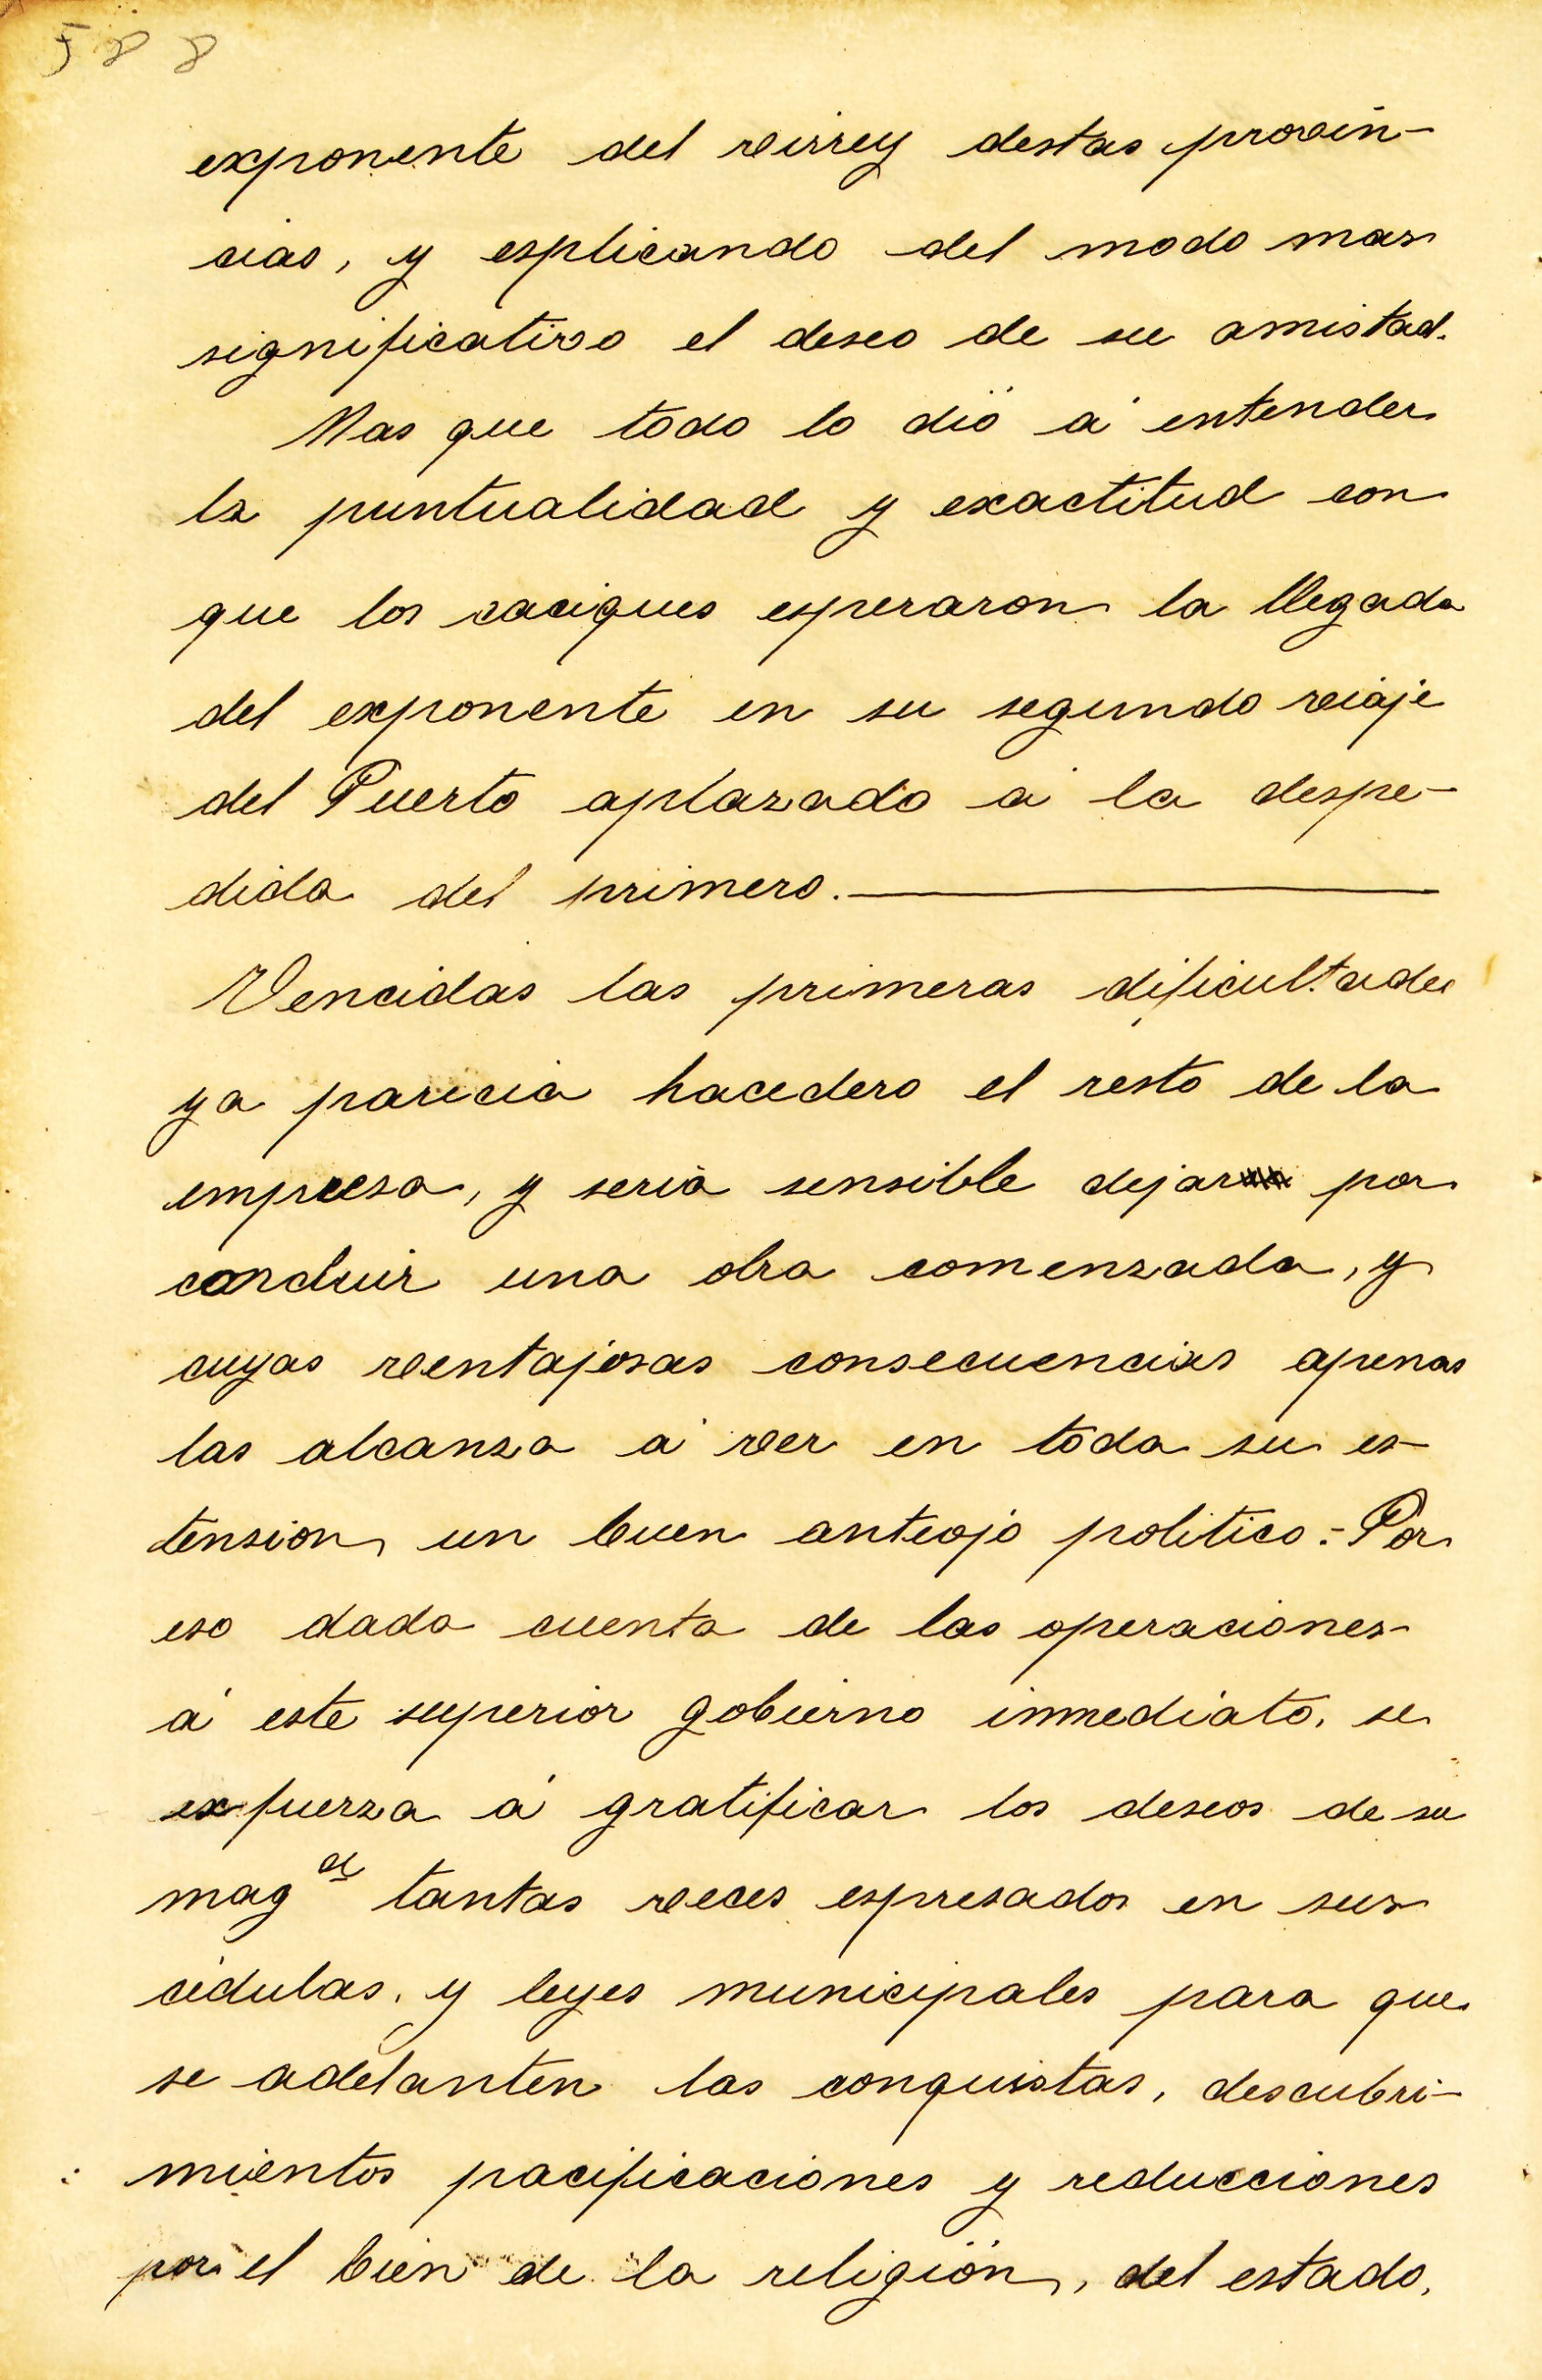 588
exponente del virrey destas provin-
cias, y esplicando del modo mas
significativo el deseo de su amistad.
Mas que todo lo dió á entender
la puntualidad y exactitud con
que los caciques esperaron la llegada
del exponente en su segundo viaje
del Puerto aplazado á la despe-
dida del primero.
Vencidas las primeras dificultades
ya parecia hacedero el resto de la
empresa, y seria sensible dejar por
concluir una obra comenzada, y
cuyas ventajosas consecuencias apenas
las alcanza á ver en toda su es-
tension un buen anteojo politico:- Por
eso dada cuenta de las operaciones
á este superior gobierno inmediato, se
exfuerza á gratificar los deseos de su
magd tantas veces espresados en sus
cédulas, y leyes municipales para que
se adelanten las conquistas, descubri-
mientos pacificaciones y reducciones
por el bien de la religión, del estado,